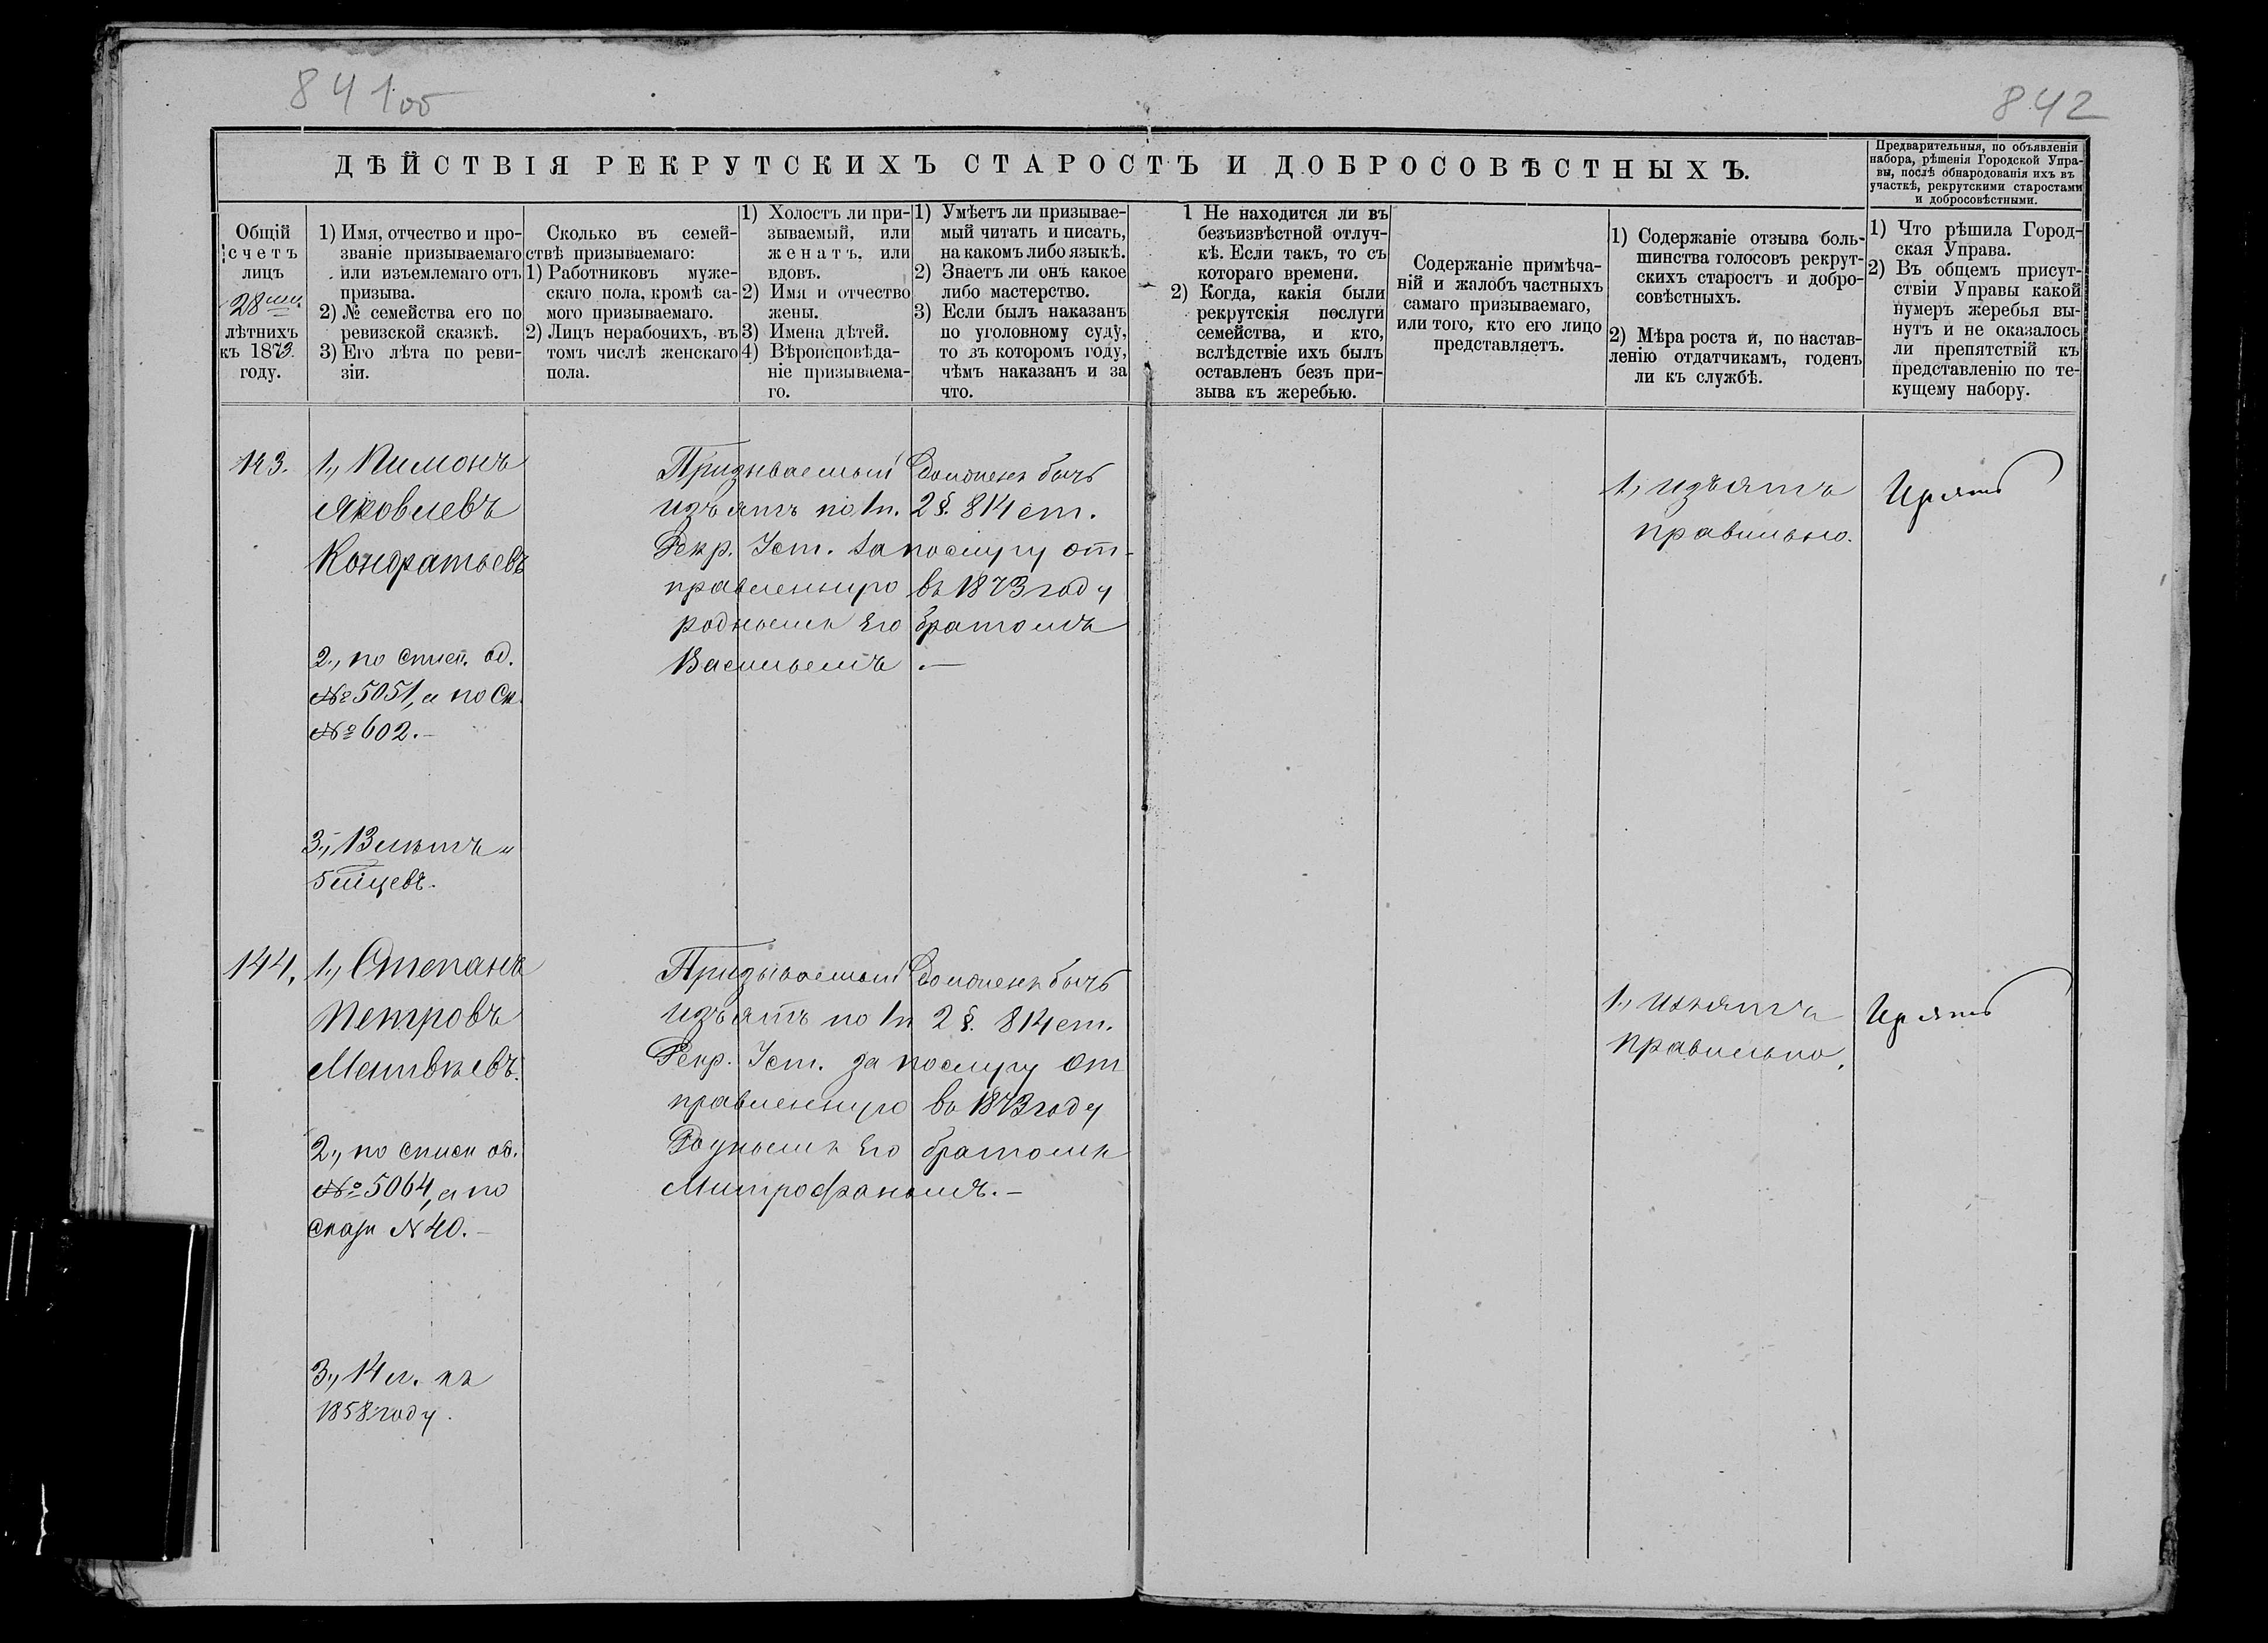 841об
842
ДѢЙСТВІЯ РЕКРУТСКИХЪ СТАРОСТЪ И ДОБРОСОВѢСТНЫХЪ.
Предварительныя, по объявленіи
набора, рѣшенія Городской Упра-
вы, послѣ обнародованія ихъ въ
участкѣ, рекрутскими старостами
и добросовѣстными.
Общій
счетъ
лицъ
28ми
лѣтнихъ
къ 1873.
году.
1) Имя, отчество и про-
званіе призываемаго
или изъемлемаго отъ
призыва.
2) № семейства его по
ревизской сказкѣ.
3) Его лѣта по реви-
зіи.
Сколько въ семей-
ствѣ призываемаго:
1) Работниковъ муже-
скаго пола, кромѣ са-
мого призываемаго.
2) Лицъ нерабочихъ, въ
томъ числѣ женскаго
пола.
1) Холостъ ли при-
зываемый, или
женатъ, или
вдовъ.
2) Имя и отчество
жены.
3) Имена дѣтей.
4) Вѣроисповѣда-
ніе призываема-
го.
1) Умѣетъ ли призывае-
мый читать и писать,
на какомъ либо языкѣ.
2) Знаетъ ли онъ какое
либо мастерство.
3) Если былъ наказанъ
по уголовному суду,
то въ которомъ году,
чѣмъ наказанъ и за
что.
1 Не находится ли въ
безъизвѣстной отлуч-
кѣ. Если такъ, то съ
котораго времени.
2) Когда, какія были
рекрутскія послуги
семейства, и кто,
вслѣдствіе ихъ былъ
оставленъ безъ при-
зыва къ жеребью.
Содержаніе примѣча-
ній и жалобъ частныхъ
самаго призываемаго,
или того, кто его лицо
представляетъ.
1) Содержаніе отзыва боль-
шинства голосовъ рекрут-
скихъ старостъ и добро-
совѣстныхъ.
2) Мѣра роста и, по настав-
ленію отдатчикамъ, годенъ
ли къ службѣ.
1) Что рѣшила Город-
ская Управа.
2) Въ общемъ присут-
ствіи Управы какой
нумеръ жеребья вы-
нутъ и не оказалось
ли препятствій къ
представленію по те-
кущему набору.
143.
1., Пимонъ
Яковлевъ
Кондратьевъ
2., по спис. об.
№ 5051, а по Ск.
№ 602.-
3., 13 лѣтъ и
5 мѣцевъ.
Призываемый долженъ быть
изъятъ по 1 п. 2 §. 814 ст.
Рекр. Уст. за послугу от-
правленную въ 1873 году
роднымъ Его братомъ
Васильемъ .—
1., изъятъ
правильно.
Изъять
144.
1., Степанъ
Петровъ
Матвѣевъ.
2., по списк об.
№ 5064, а по
сказк № 40.-
3., 14 л. къ
1858 году.
Призываемый долженъ быть
изъятъ по 1 п 2 §. 814 ст.
Рекр. Уст. за послугу от
правленную въ 1873 году
Роднымъ Его братомъ
Митрофаномъ.-
1., изъятъ
правильно.
Изъять